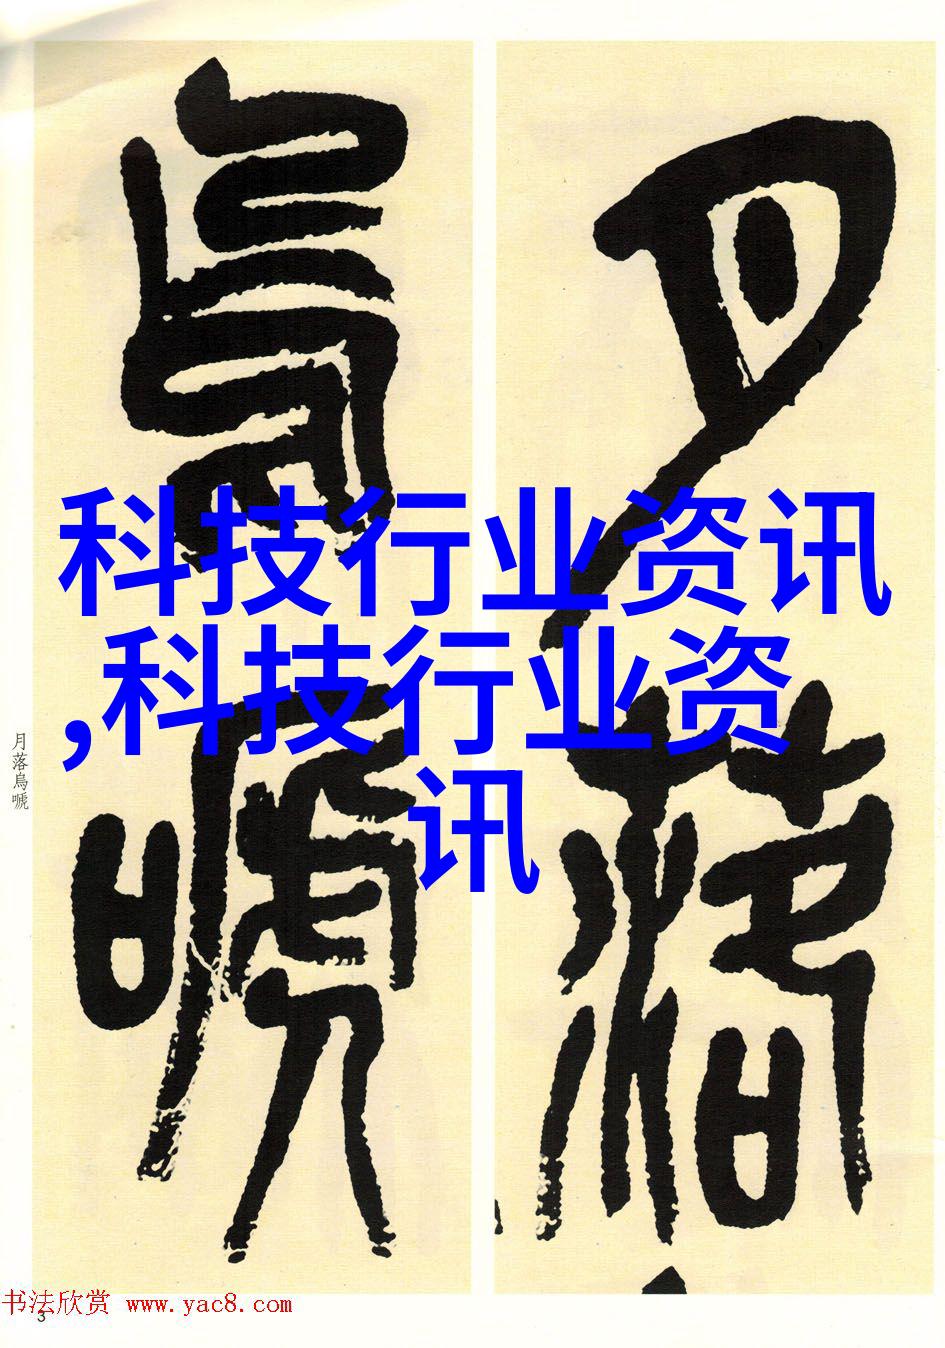 月落
烏嗁
科技行业资讯
,科技行业资
讯
月落烏嗁
书法欣赏 www.yac8.com
3